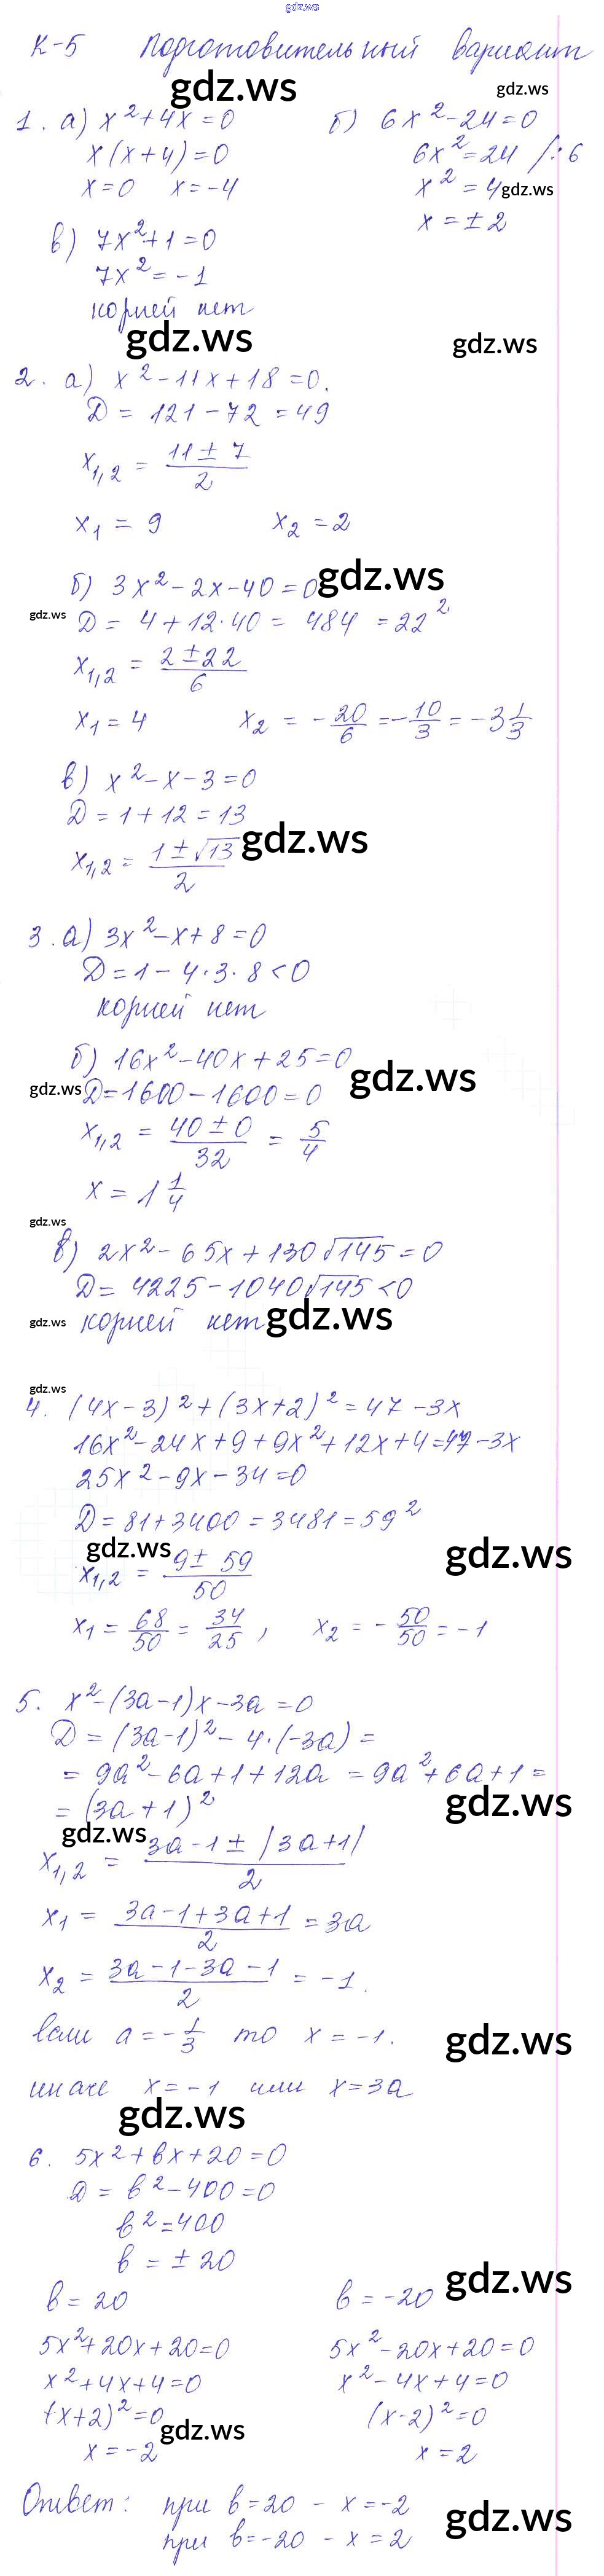 gdz.ws
К-5 Подготовительный вариант
gdz.ws
gdz.ws
1. а) x² + 4x = 0 б) 6x² - 24 = 0
x(x + 4) = 0 6x² = 24 /:6
x = 0 x = -4 x² = 4 gdz.ws
x = ± 2
в) 7x² + 1 = 0
7x² = -1
корней нет
gdz.ws gdz.ws
2. а) x² - 11x + 18 = 0.
D = 121 - 72 = 49
x₁,₂ = (11 ± 7)/2
x₁ = 9 x₂ = 2
б) 3x² - 2x - 40 = 0 gdz.ws
gdz.ws D = 4 + 12·40 = 484 = 22²
x₁,₂ = (2 ± 22)/6
x₁ = 4 x₂ = -20/6 = -10/3 = -3 1/3
в) x² - x - 3 = 0
D = 1 + 12 = 13
x₁,₂ = (1 ± √13)/2 gdz.ws
3. а) 3x² - x + 8 = 0
D = 1 - 4·3·8 < 0
корней нет
б) 16x² - 40x + 25 = 0 gdz.ws
gdz.ws D = 1600 - 1600 = 0
x₁,₂ = (40 ± 0)/32 = 5/4
x = 1 1/4
gdz.ws
в) 2x² - 65x + 130√145 = 0
D = 4225 - 1040√145 < 0
gdz.ws корней нет gdz.ws
gdz.ws
4. (4x - 3)² + (3x + 2)² = 47 - 3x
16x² - 24x + 9 + 9x² + 12x + 4 = 47 - 3x
25x² - 9x - 34 = 0
D = 81 + 3400 = 3481 = 59²
gdz.ws gdz.ws
x₁,₂ = (9 ± 59)/50
x₁ = 68/50 = 34/25 , x₂ = -50/50 = -1
5. x² - (3a - 1)x - 3a = 0
D = (3a - 1)² - 4·(-3a) =
= 9a² - 6a + 1 + 12a = 9a² + 6a + 1 =
= (3a + 1)² gdz.ws
gdz.ws
x₁,₂ = (3a - 1 ± |3a + 1|)/2
x₁ = (3a - 1 + 3a + 1)/2 = 3a
x₂ = (3a - 1 - 3a - 1)/2 = -1.
если a = -1/3 то x = -1. gdz.ws
иначе x = -1 или x = 3a
gdz.ws
6. 5x² + bx + 20 = 0
D = b² - 400 = 0
b² = 400
b = ± 20
b = 20 b = -20 gdz.ws
5x² + 20x + 20 = 0 5x² - 20x + 20 = 0
x² + 4x + 4 = 0 x² - 4x + 4 = 0
(x + 2)² = 0 (x - 2)² = 0
gdz.ws
x = -2 x = 2
Ответ: при b = 20 - x = -2 gdz.ws
при b = -20 - x = 2